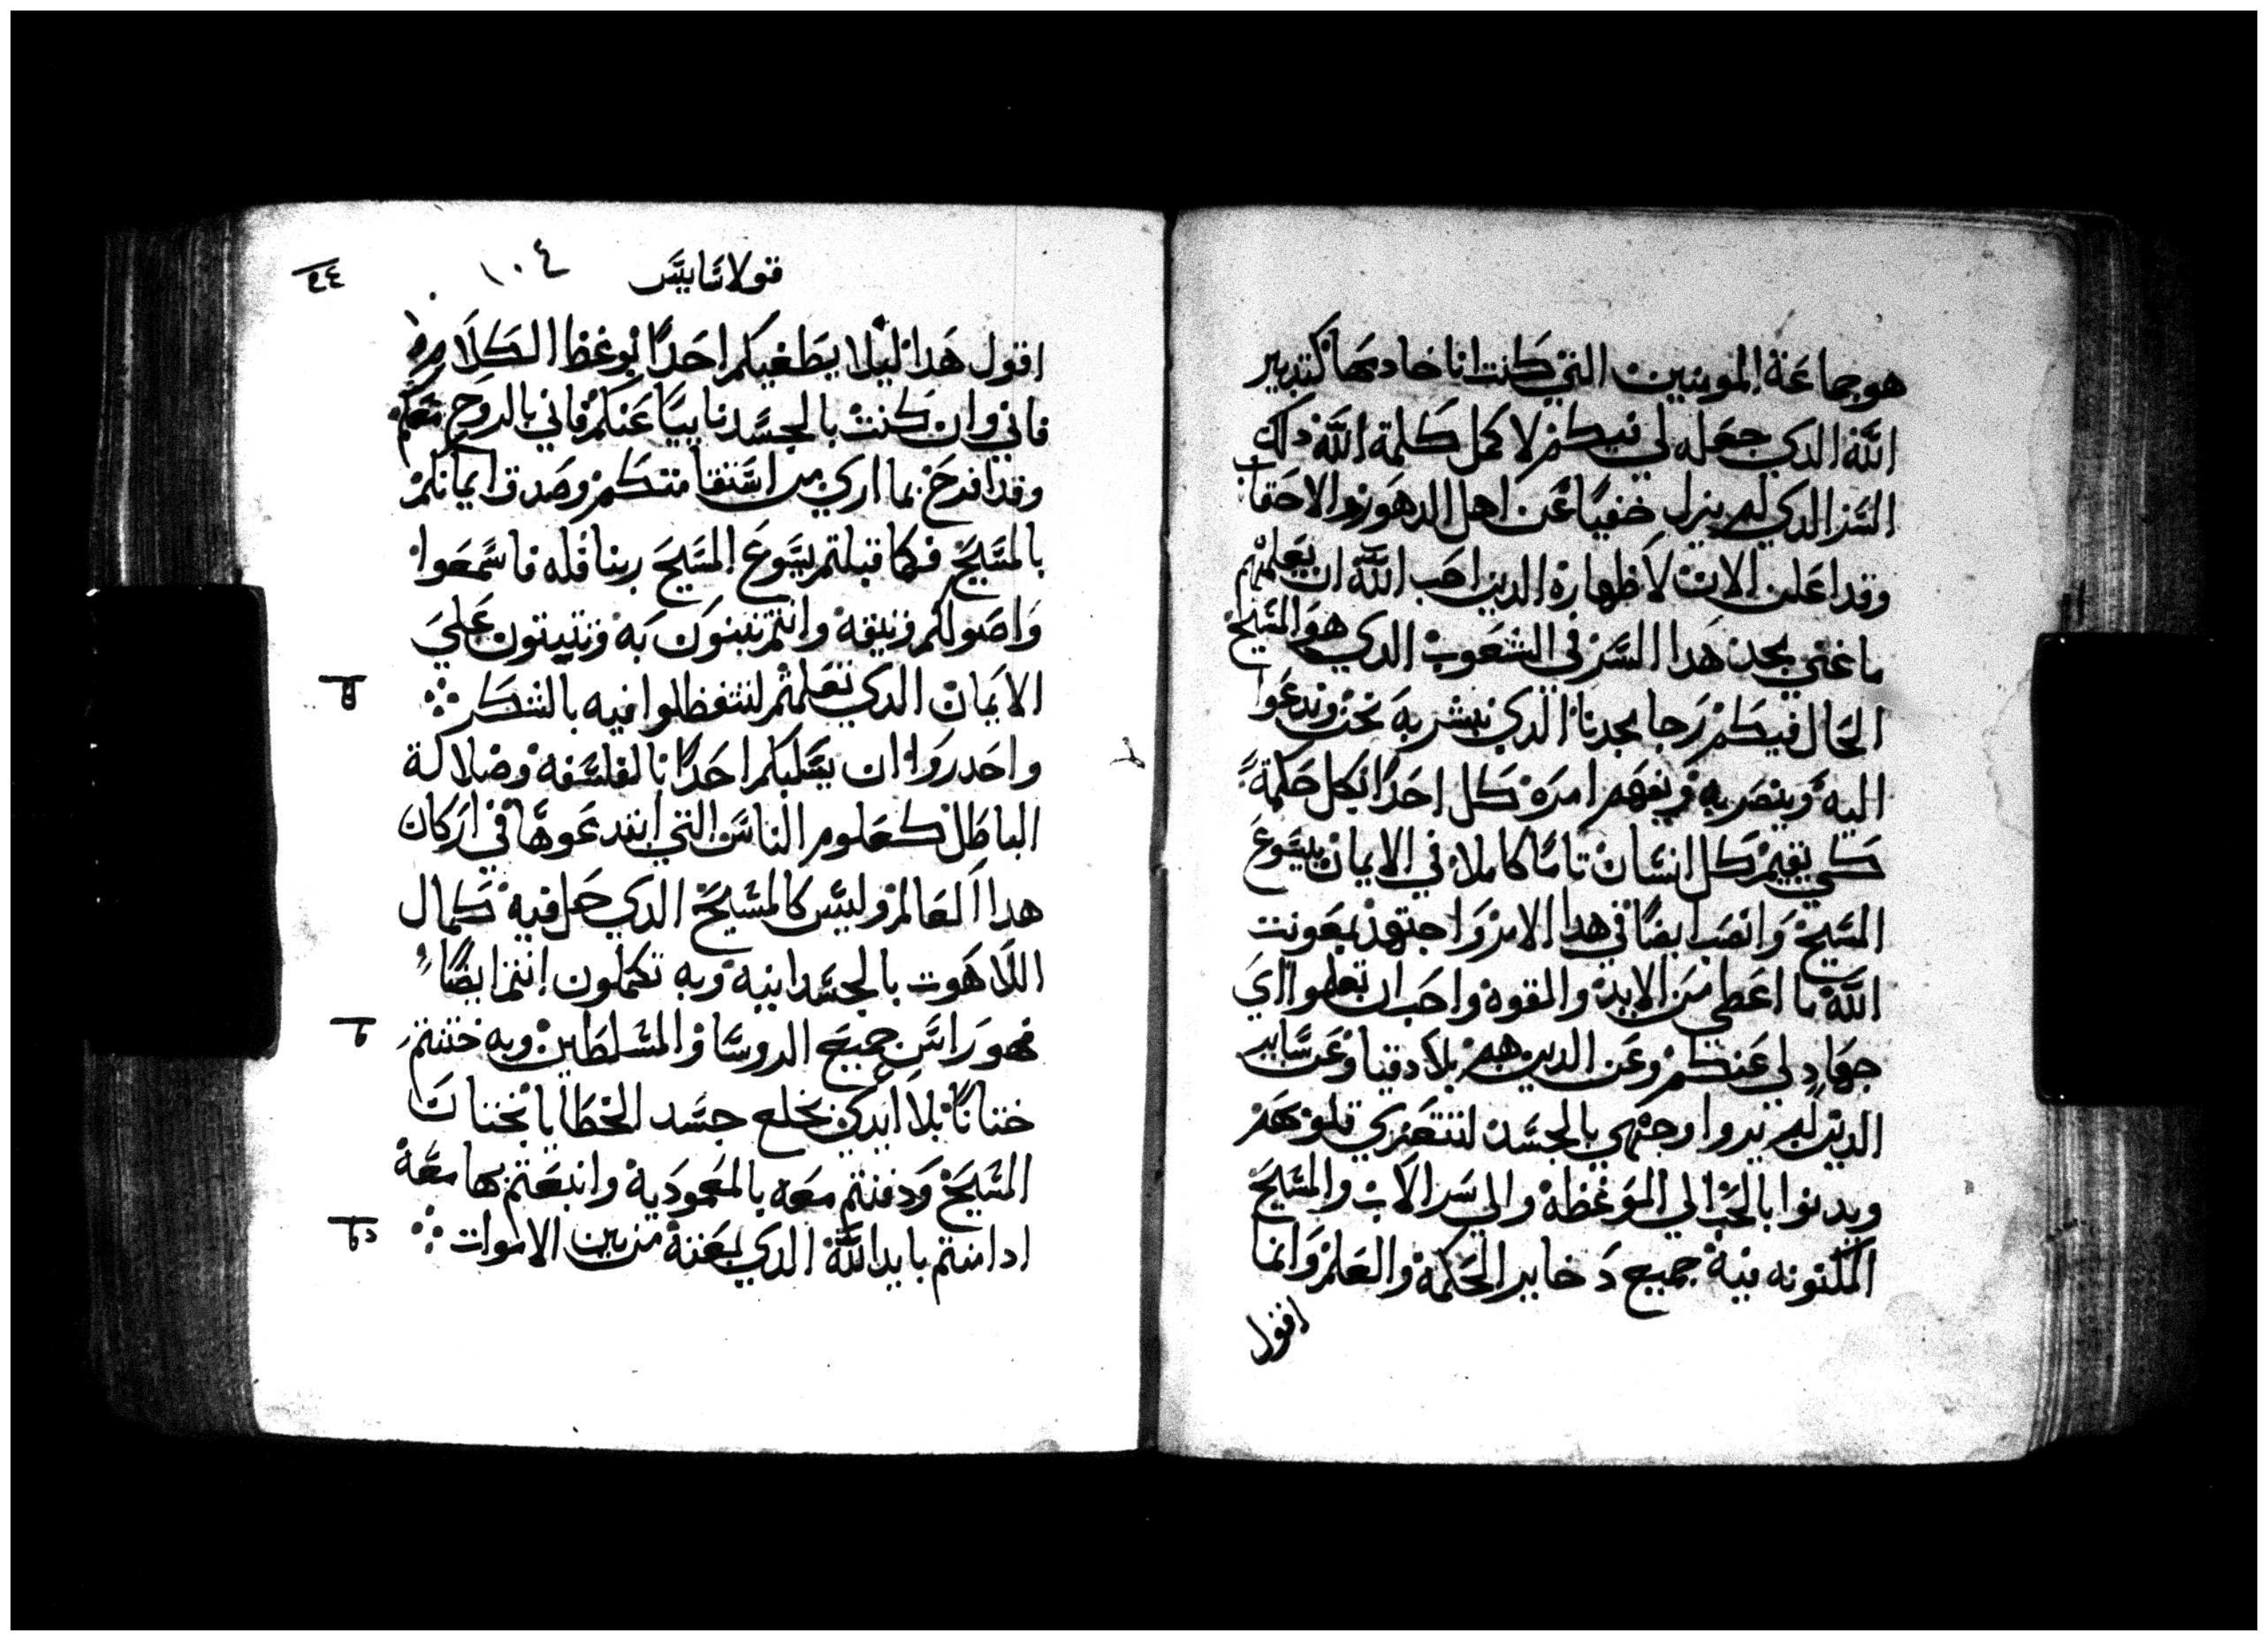 هو جماعة المومنين التي كنت انا خادمها كتدبير
الله الدي جعله لي فيكم لاكمل كلمة الله داك
السر الدي لم يزل خفيًا عن اهل الدهور والاحقاب
وقد اعلن الان لاظهاره الدين احب الله ان يعلمهم
ما غني مجد هدا السر في الشعوب الدي هو المسيح
الحال فيكم رجا مجدنا الدي نبشر به نحن وندعوا
اليه وينصر به ويفهم امره كل احدًا بكل حكمة
كي نقيم كل انسان تامًا كاملا في الايمان بيسوع
المسيح وانصب ايضًا في هدا الامر واجتهد بمعونت
الله ما اعطي من الايد والقوه واحب ان تعلموا اي
جهاد لي عنكم وعن الدين هم بلادقيا وعن ساير
الدين لم يروا وجهي بالجسد لتتعزي قلوبهم
ويدنوا بالحب الي الموعظة والي سر الاب والمسيح
المكنونه فيه جميع دخاير الحكمة والعلم وانما
اقول
قولاسايس ١٠٤
اقول هدا ليلا يطغيكم احدًا بوعظ الكلام
فاني وان كنت بالجسد نايبًا عنكم فاني بالروح معكم
وقد افرح بما اري من استقامتكم وصدق ايمانكم
بالمسيح فكما قبلتم يسوع المسيح ربنا فله فاسمعوا
واصولكم وتيقه وانتم تبنون به وتتبتون علي
الايمان الدي تعلمتم لتتفظلوا فيه بالشكر
واحدروا ان يسلبكم احدًا بالفلسفه وضلالة
الباطل كعلوم الناس التي ابتدعوها في اركان
هدا العالم وليس كالمسيح الدي حل فيه كمال
اللاهوت بالجسدانيه وبه تكملون انتم ايضًا
فهو راس جميع الروسا والمسلطين وبه ختنتم
ختانًا بلا ايدي بخلع جسد الخطايا بختان
المسيح ودفنتم معه بالمعمودية وانبعتم بها معه
اد امنتم بايد الله الدي بعته من بين الاموات